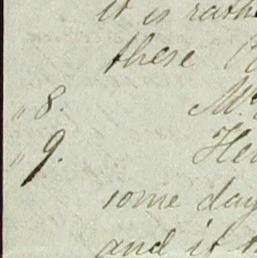 it is rathe
these
" 8. Mr
" 9. He
some day
and it